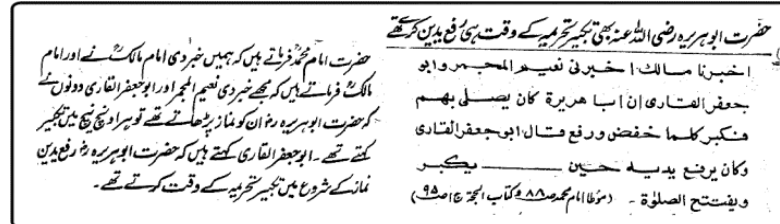 حضرت ابوہریرہ رضی اللہ عنہ بھی تکبیر تحریمہ کے وقت ہی رفع یدین کرتے تھے
اخبرنا مالك اخبرنی نعیم المجمر وابو
جعفر القاری ان ابا هریرة کان یصلی بهم
فکبر کلما خفض ورفع قال ابو جعفر القاری
وکان یرفع یدیه حین یکبر
ویفتتح الصلوٰة ۔ (مؤطا امام محمد صـ ۸۸ وکتاب الحجۃ ج۱ صـ ۹۵)
حضرت امام محمدؒ فرماتے ہیں کہ ہمیں خبر دی امام مالکؒ نے اور امام
مالکؒ فرماتے ہیں کہ مجھے خبر دی نعیم المجمر اور ابو جعفر القاری دونوں نے
کہ حضرت ابوہریرہ رضؓ ان کو نماز پڑھاتے تھے تو ہر اونچ نیچ میں تکبیر
کہتے تھے ۔ ابو جعفر القاری کہتے ہیں کہ حضرت ابوہریرہ رضؓ رفع یدین
نماز کے شروع میں تکبیر تحریمہ کے وقت کرتے تھے ۔